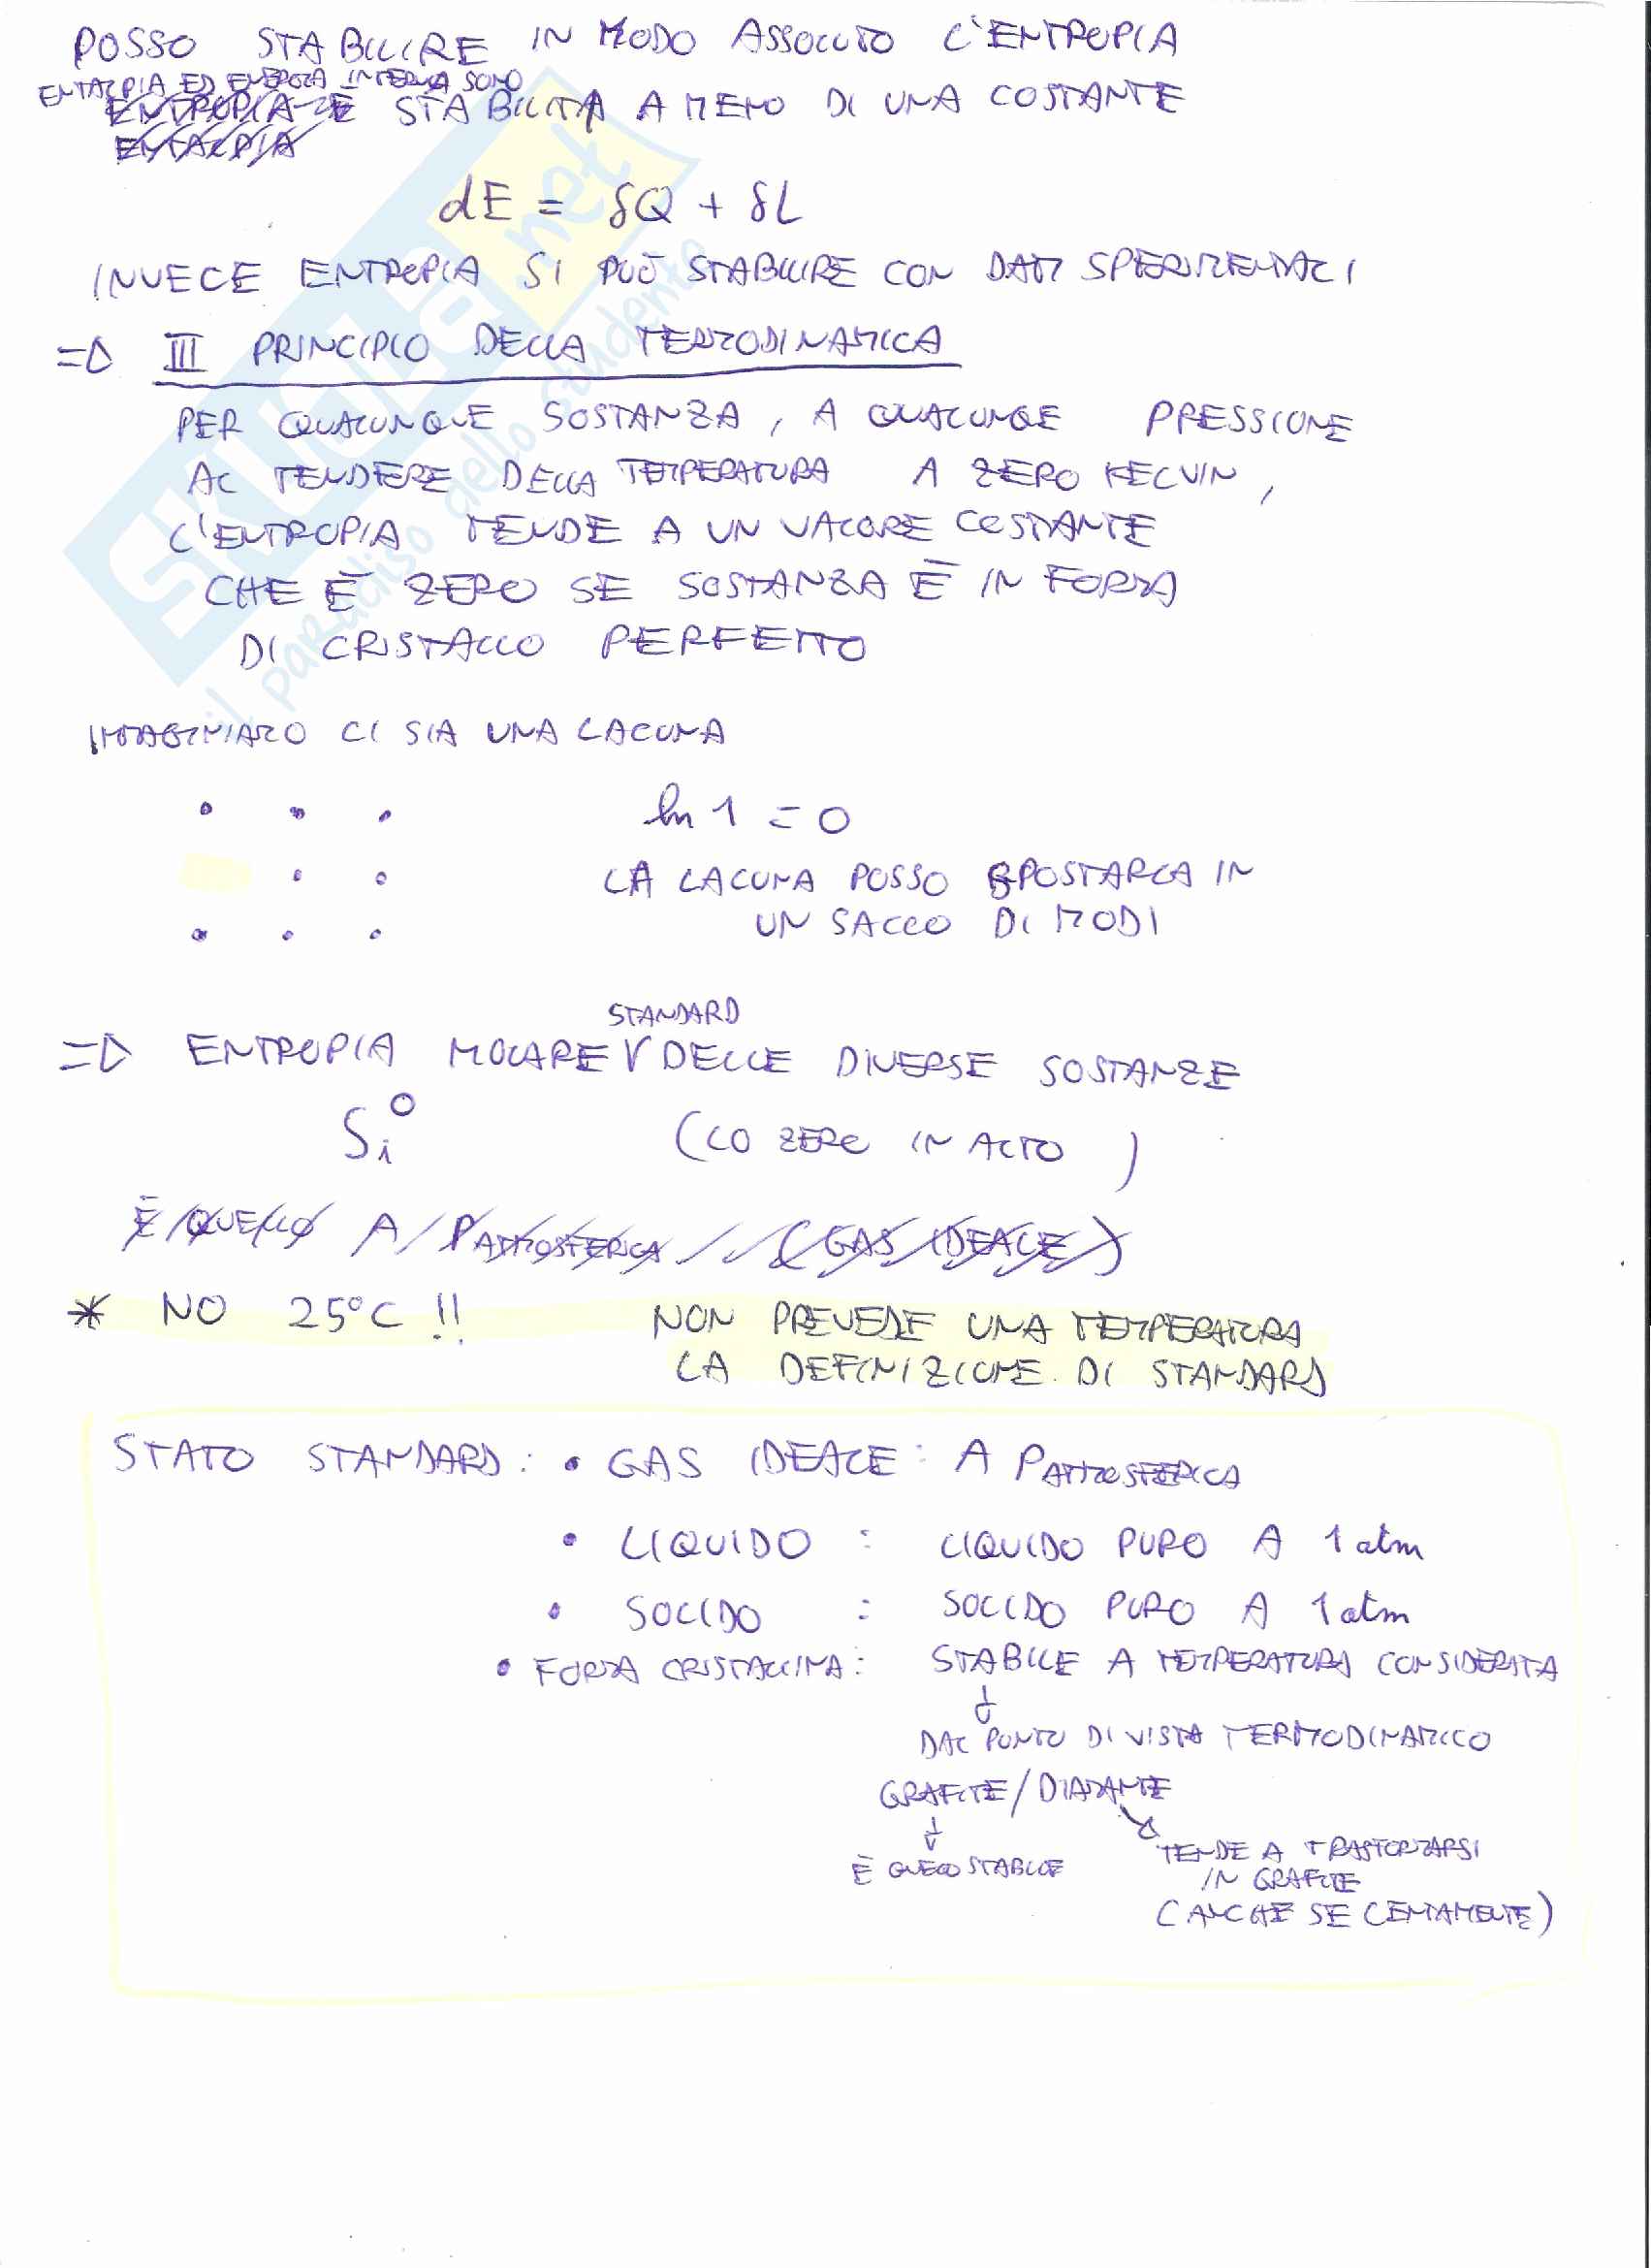 POSSO STABILIRE IN MODO ASSOLUTO L'ENTROPIA
ENTALPIA ED ENERGIA INTERNA SONO
ENTROPIA È STABILITA A MENO DI UNA COSTANTE
ENTALPIA
dE = δQ + δL
INVECE ENTROPIA SI PUÒ STABILIRE CON DATI SPERIMENTALI
=> III PRINCIPIO DELLA TERMODINAMICA
PER QUALUNQUE SOSTANZA, A QUALUNQE PRESSIONE
AL TENDERE DELLA TEMPERATURA A ZERO KELVIN,
L'ENTROPIA TENDE A UN VALORE COSTANTE
CHE È ZERO SE SOSTANZA È IN FORMA
DI CRISTALLO PERFETTO
SKUOLA.net
il paradiso dello studente
IMMAGINIAMO CI SIA UNA LACUNA
ln 1 = 0
LA LACUNA POSSO SPOSTARLA IN
UN SACCO DI MODI
STANDARD
=> ENTROPIA MOLARE V DELLE DIVERSE SOSTANZE
Si° (LO ZERO IN ALTO)
È QUELLO A PATMOSFERICA (GAS IDEALE)
* NO 25°C !! NON PREVEDE UNA TEMPERATURA
LA DEFINIZIONE DI STANDARD
STATO STANDARD: • GAS IDEALE: A PATMOSFERICA
• LIQUIDO : LIQUIDO PURO A 1 atm
• SOLIDO : SOLIDO PURO A 1 atm
• FORMA CRISTALLINA: STABILE A TEMPERATURA CONSIDERATA
DAL PUNTO DI VISTA TERMODINAMICO
GRAFITE/DIAMANTE
È QUELLO STABILE
TENDE A TRASFORMARSI
IN GRAFITE
(ANCHE SE LENTAMENTE)